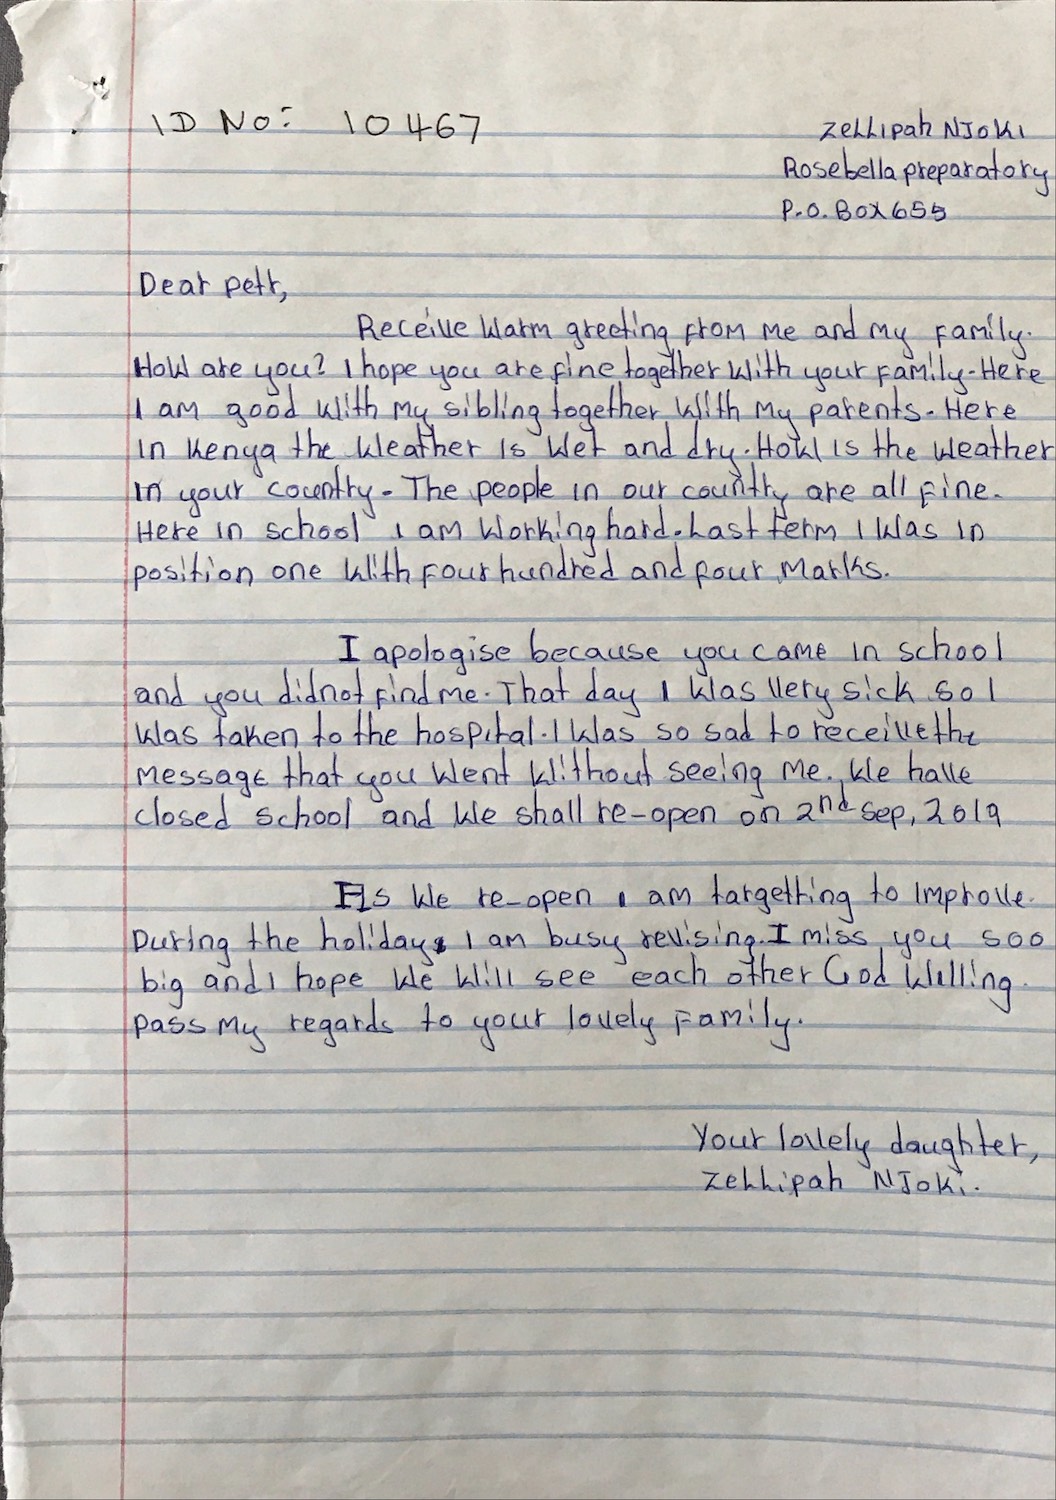 ID No: 10467
Zellipah Njoki
Rosebella preparatory
P.O. Box 655
Dear petr,
Receive warm greeting from me and my family.
How are you? I hope you are fine together with your family. Here
I am good with my sibling together with my parents. Here
in Kenya the weather is wet and dry. How is the weather
in your country. The people in our country are all fine.
Here in school i am working hard. Last term I was in
position one with four hundred and four marks.
I apologise because you came in school
and you didnot find me. That day I was very sick so I
was taken to the hospital. I was so sad to receive the
message that you went without seeing me. We have
closed school and we shall re-open on 2nd Sep, 2019
As we re-open i am targetting to improve.
During the holidays I am busy revising. I miss you soo
big and I hope we will see each other God willing.
pass my regards to your lovely family.
Your lovely daughter,
Zellipah Njoki.